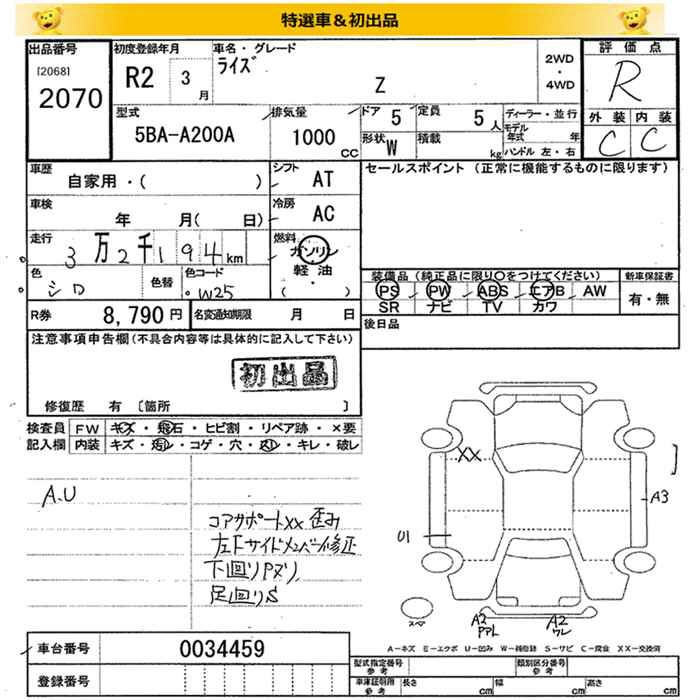 特選車&初出品
出品番号 初度登録年月 車名・グレード 2WD・4WD 評価点
[2068]
2070 R2 3月 ライズ Z R
型式 排気量 ドア 5 定員 5人 ディーラー・並行 外装 内装
5BA-A200A 1000CC 形状 W 積載 kg モデル年式 年 ハンドル 左・右 C C
車歴 シフト セールスポイント (正常に機能するものに限ります)
自家用・( ) AT
車検 冷房
年 月( 日) AC
走行 3万2千194km 燃料 ガソリン
色 色替 色コード 軽油 装備品 (純正品に限り○をつけてください) 新車保証書
シロ W25 ・( ) PS PW ABS エアB AW 有・無
SR ナビ TV カワ
R券 8,790円 名変通知期限 月 日 後日品
注意事項申告欄(不具合内容等は具体的に記入して下さい)
初出品
修復歴 有 〔箇所 〕
検査員 FW キズ・飛石・ヒビ割・リペア跡・×要
記入欄 内装 キズ・汚レ・コゲ・穴・スレ・キレ・破レ
A.U
コアサポートXX 歪み
左Fサイドメンバー修正
下回りPヌリ
足回りS
XX
A3
U1
スペア
A2
ワレ
A2
車台番号 0034459
登録番号
A-キズ E-エクボ U-凹み W-補修跡 S-サビ C-腐食 XX-交換済
型式指定番号 参考 類別区分番号 参考
車庫証明用 参考 長さ cm 幅 cm 高さ cm